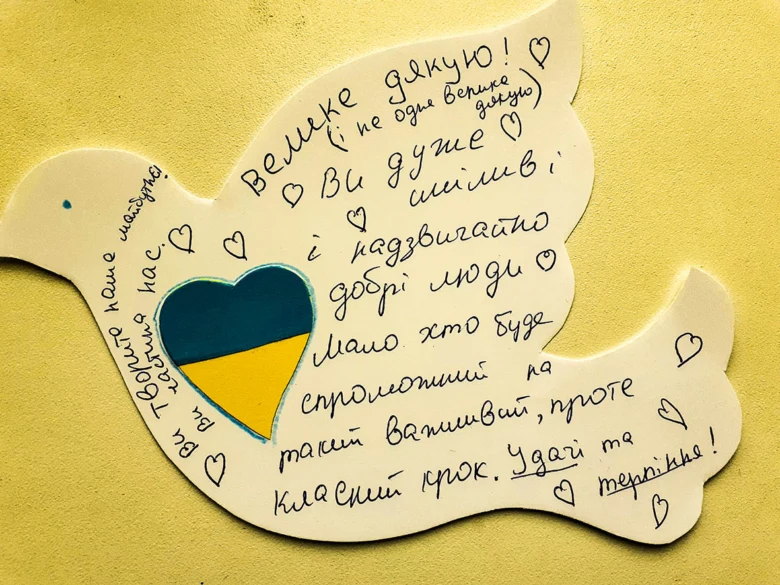 Велике дякую! ♡
(і не одне велике
дякую)
♡ Ви дуже ♡
сміливі
♡
і надзвичайно
добрі люди ♡
Мало хто буде
спроможний на
такий важливий, проте
класний крок. Удачі та
терпіння!
♡ Ви творите наше майбутнє!
Ви частина нас. ♡